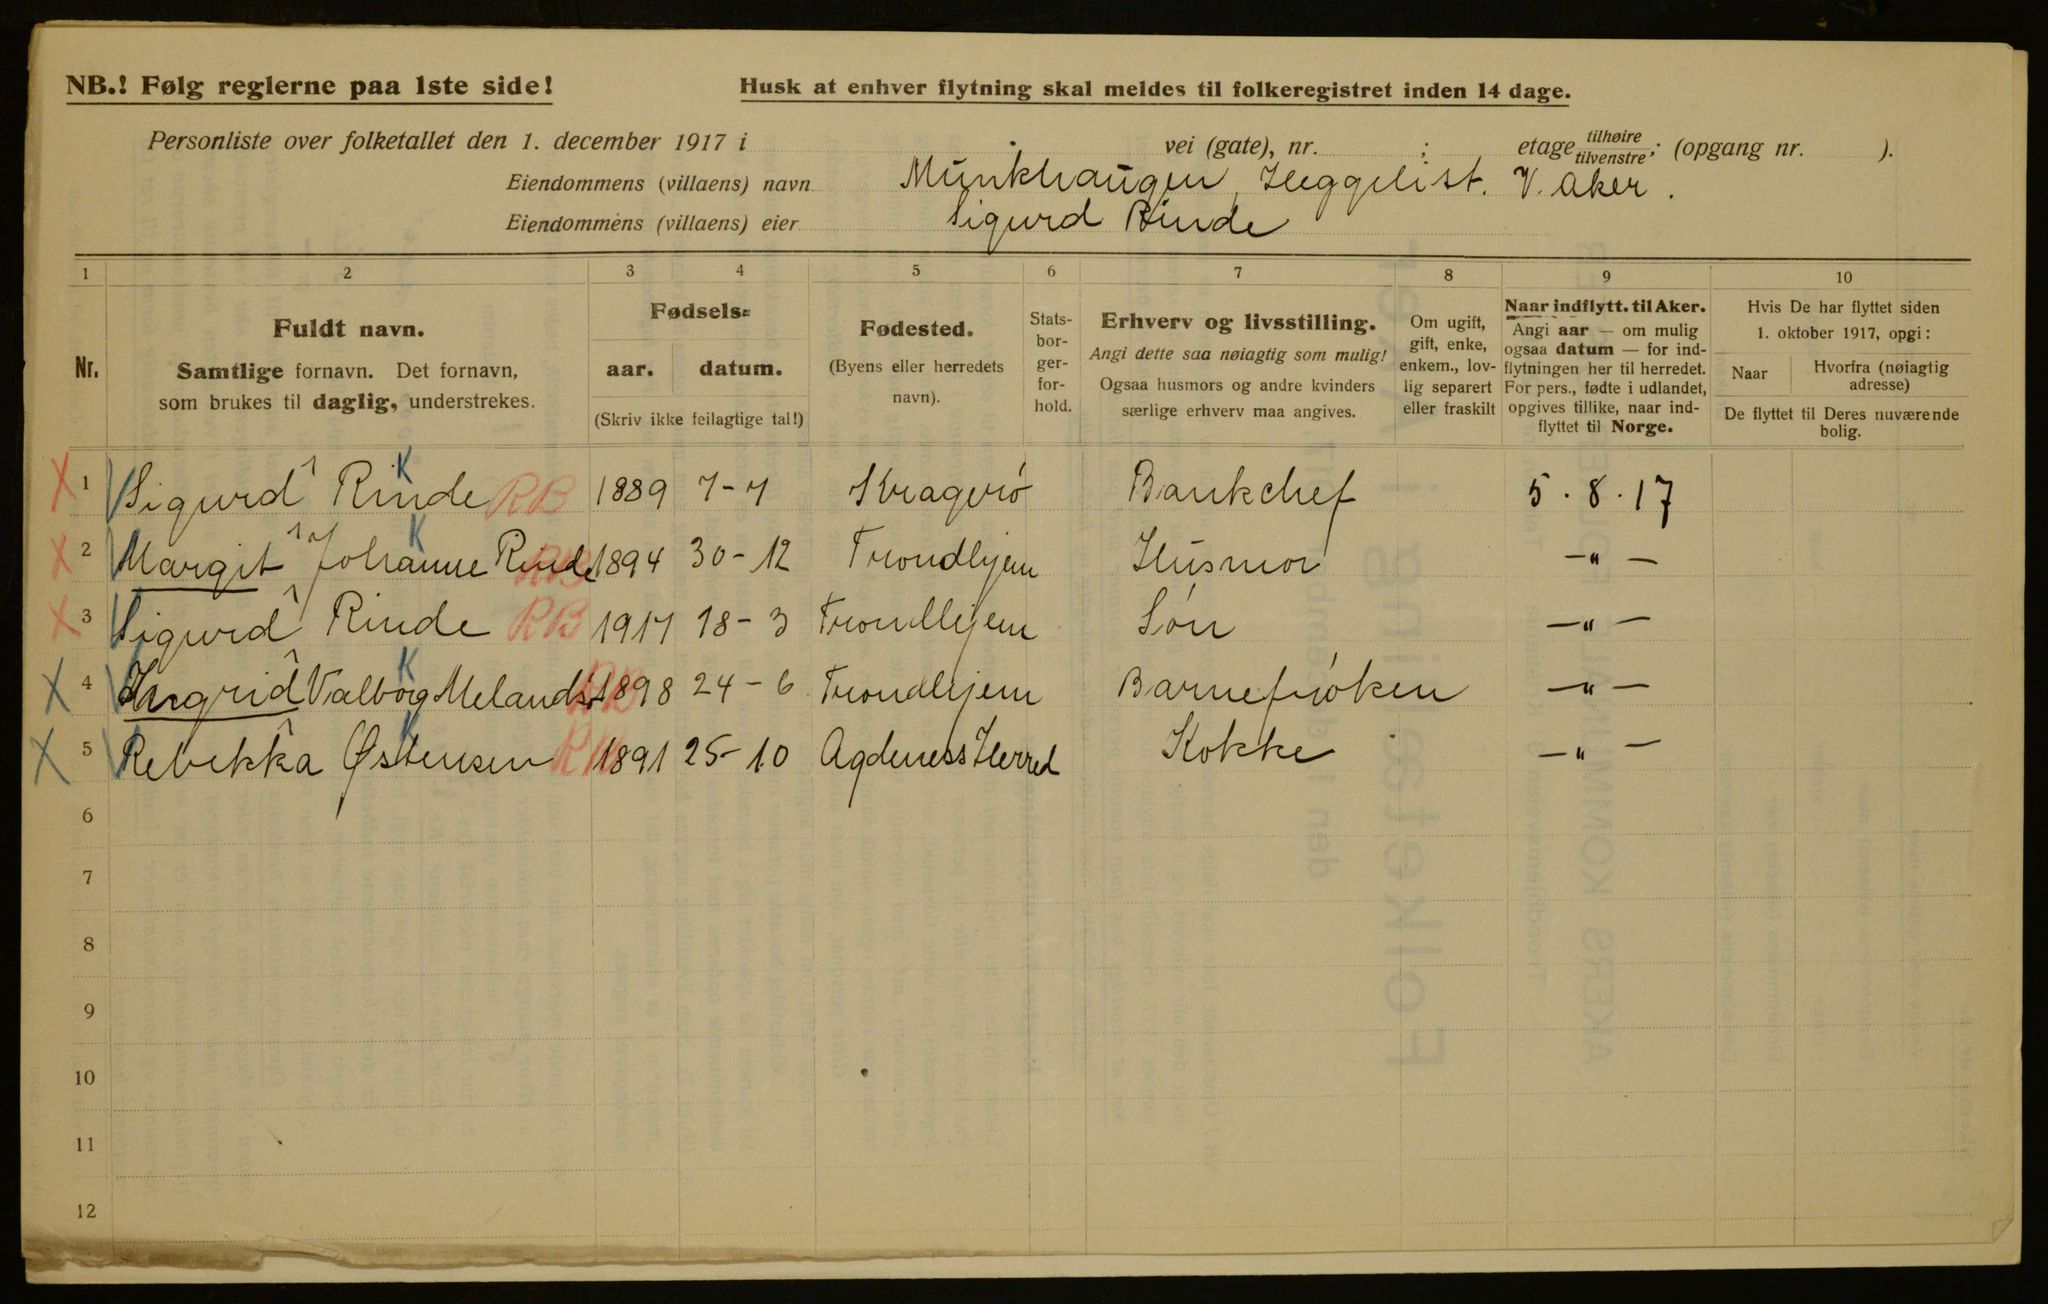 NB.! Følg reglerne paa 1ste side!
Husk at enhver flytning skal meldes til folkeregistret inden 14 dage.
Personliste over folketallet den 1. december 1917 i vei (gate), nr. ; etage tilhøire/tilvenstre; (opgang nr. ).
Eiendommens (villaens) navn Munkhaugen, Heggelist. V. Aker.
Eiendommens (villaens) eier Sigurd Rinde
1 2 3 4 5 6 7 8 9 10
Nr.
Fuldt navn.
Samtlige fornavn. Det fornavn,
som brukes til daglig, understrekes.
Fødsels-
aar. datum.
(Skriv ikke feilagtige tal!)
Fødested.
(Byens eller herredets
navn).
Stats-
bor-
ger-
for-
hold.
Erhverv og livsstilling.
Angi dette saa nøiagtig som mulig!
Ogsaa husmors og andre kvinders
særlige erhverv maa angives.
Om ugift,
gift, enke,
enkem., lov-
lig separert
eller fraskilt
Naar indflytt. til Aker.
Angi aar — om mulig
ogsaa datum — for ind-
flytningen her til herredet.
For pers., fødte i udlandet,
opgives tillike, naar ind-
flyttet til Norge.
Hvis De har flyttet siden
1. oktober 1917, opgi:
Naar
Hvorfra (nøiagtig
adresse)
De flyttet til Deres nuværende
bolig.
X 1 Sigurd Rinde K RB 1889 7-7 Kragerö Bankchef 5.8.17
X 2 Margit Johanne Rinde K RB 1894 30-12 Trondhjem Husmor -"-
X 3 Sigurd Rinde RB 1917 18-3 Trondhjem Sön -"-
X 4 Ingrid Valborg Melandsö K RB 1898 24-6 Trondhjem Barnefröken -"-
X 5 Rebekka Østensen K 1891 25-10 Agdeness Herred Kokke -"-
6
7
8
9
10
11
12